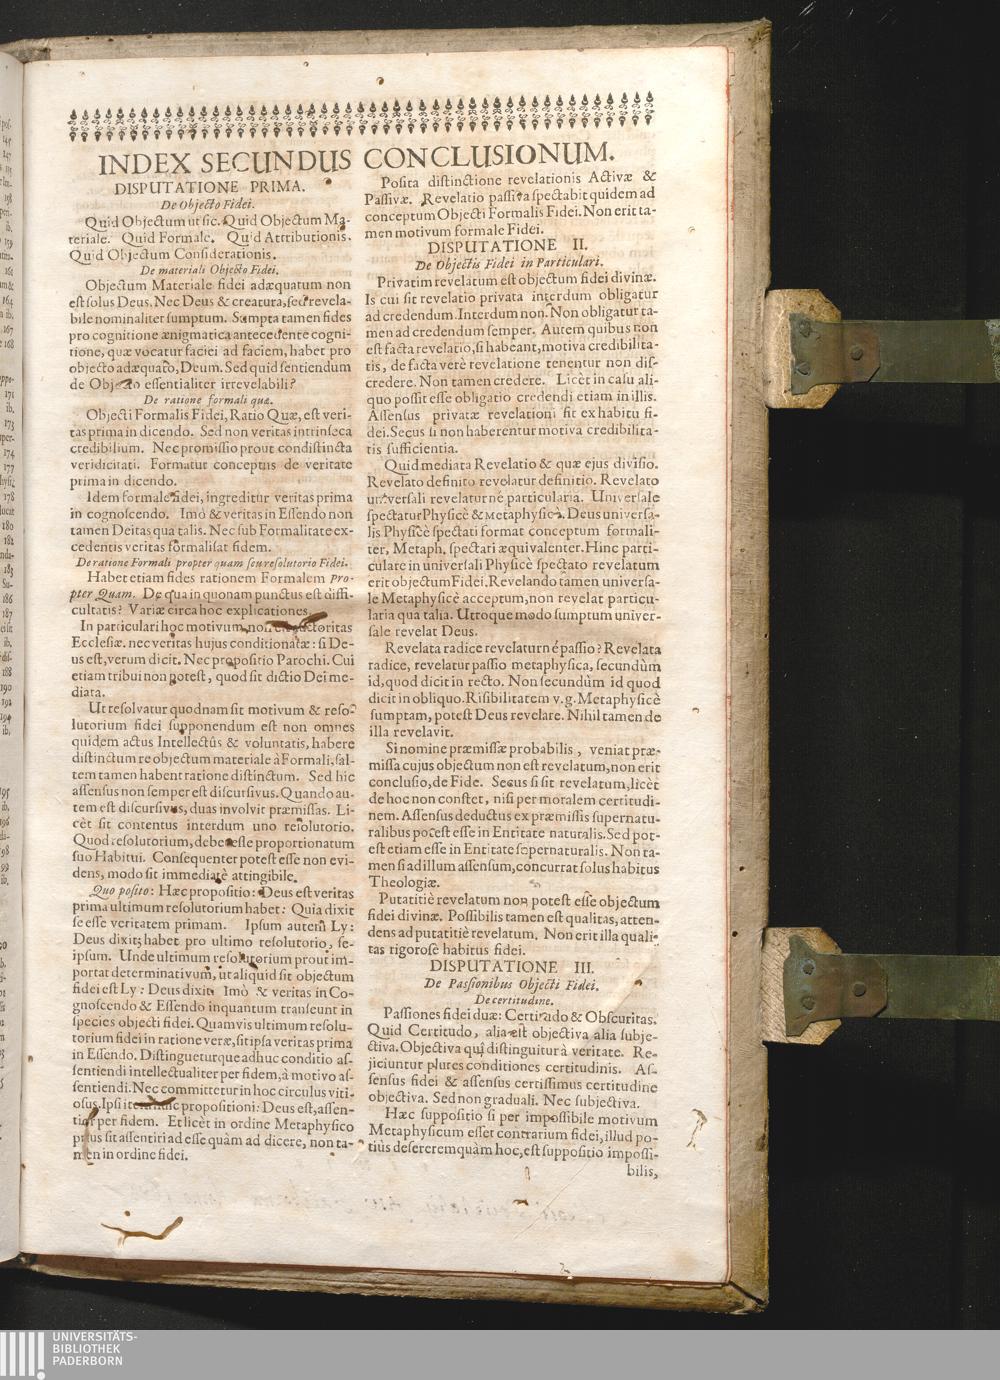 INDEX SECUNDUS CONCLUSIONUM.
DISPUTATIONE PRIMA.
De Objecto Fidei.
Quid Objectum ut sic. Quid Objectum Ma-
teriale. Quid Formale. Quid Attributionis.
Quid Objectum Considerationis.
De materiali Objecto Fidei.
Objectum Materiale fidei adæquatum non
est solus Deus. Nec Deus & creatura, sed revela-
bile nominaliter sumptum. Sumpta tamen fides
pro cognitione ænigmatica antecedente cogni-
tione, quæ vocatur faciei ad faciem, habet pro
objecto adæquato, Deum. Sed quid sentiendum
de Objecto essentialiter irrevelabili?
De ratione formali quæ.
Objecti Formalis Fidei, Ratio Quæ, est veri-
tas prima in dicendo. Sed non veritas intrinseca
credibilium. Nec promissio prout condistincta
veridicitati. Formatur conceptus de veritate
prima in dicendo.
Idem formale fidei, ingreditur veritas prima
in cognoscendo. Imò & veritas in Essendo non
tamen Deitas qua talis. Nec sub Formalitate ex-
cedentis veritas formalisat fidem.
De ratione Formali propter quam seu resolutorio Fidei.
Habet etiam fides rationem Formalem Pro-
pter Quam. De qua in quonam punctus est diffi-
cultatis? Variæ circa hoc explicationes.
In particulari hoc motivum, non est auctoritas
Ecclesiæ. nec veritas hujus conditionatæ: si De-
us est, verum dicit. Nec propositio Parochi. Cui
etiam tribui non potest, quod sit dictio Dei me-
diata.
Ut resolvatur quodnam sit motivum & reso-
lutorium fidei supponendum est non omnes
quidem actus Intellectûs & voluntatis, habere
distinctum re objectum materiale à Formali, sal-
tem tamen habent ratione distinctum. Sed hic
assensus non semper est discursivus. Quando au-
tem est discursivus, duas involvit præmissas. Li-
cèt sit contentus interdum uno resolutorio.
Quod resolutorium, debet esse proportionatum
suo Habitui. Consequenter potest esse non evi-
dens, modo sit immediatè attingibile.
Quo posito: Hæc propositio: Deus est veritas
prima ultimum resolutorium habet: Quia dixit
se esse veritatem primam. Ipsum autem Ly:
Deus dixit; habet pro ultimo resolutorio, se-
ipsum. Unde ultimum resolutorium prout im-
portat determinativum, ut aliquid sit objectum
fidei est Ly: Deus dixit. Imò & veritas in Co-
gnoscendo & Essendo inquantum transeunt in
species objecti fidei. Quamvis ultimum resolu-
torium fidei in ratione veræ, sit ipsa veritas prima
in Essendo. Distingueturque adhuc conditio as-
sentiendi intellectualiter per fidem, à motivo as-
sentiendi. Nec committetur in hoc circulus viti-
osus. Ipsi propositioni: Deus est, assen-
tior per fidem. Et licèt in ordine Metaphysico
prius sit assentiri ad esse quàm ad dicere, non ta-
men in ordine fidei.
Posita distinctione revelationis Activæ &
Passivæ. Revelatio passiva spectabit quidem ad
conceptum Objecti Formalis Fidei. Non erit ta-
men motivum formale Fidei.
DISPUTATIONE II.
De Objectis Fidei in Particulari.
Privatim revelatum est objectum fidei divinæ.
Is cui fit revelatio privata interdum obligatur
ad credendum. Interdum non. Non obligatur ta-
men ad credendum semper. Autem quibus non
est facta revelatio, si habeant, motiva credibilita-
tis, de facta verè revelatione tenentur non dis-
credere. Non tamen credere. Licèt in casu ali-
quo possit esse obligatio credendi etiam in illis.
Assensus privatæ revelationi fit ex habitu fi-
dei. Secus si non haberentur motiva credibilita-
tis sufficientia.
Quid mediata Revelatio & quæ ejus divisio.
Revelato definito revelatur definitio. Revelato
universali revelaturné particularia. Universale
spectatur Physicè & Metaphysicè. Deus universa-
lis Physicè spectati format conceptum formali-
ter, Metaph. spectati æquivalenter. Hinc parti-
culare in universali Physicè spectato revelatum
erit objectum Fidei. Revelando tamen universa-
le Metaphysicè acceptum, non revelat particu-
laria qua talia. Utroque modo sumptum univer-
sale revelat Deus.
Revelata radice revelaturné passio? Revelata
radice, revelatur passio metaphysica, secundùm
id, quod dicit in recto. Non secundùm id quod
dicit in obliquo. Risibilitatem v. g. Metaphysicè
sumptam, potest Deus revelare. Nihil tamen de
illa revelavit.
Si nomine præmissæ probabilis, veniat præ-
missa cujus objectum non est revelatum, non erit
conclusio, de Fide. Secus si sit revelatum, licèt
de hoc non constet, nisi per moralem certitudi-
nem. Assensus deductus ex præmissis supernatu-
ralibus potest esse in Entitate naturalis. Sed pot-
est etiam esse in Entitate supernaturalis. Non ta-
men si ad illum assensum, concurrat solus habitus
Theologiæ.
Putatitiè revelatum non potest esse objectum
fidei divinæ. Possibilis tamen est qualitas, atten-
dens ad putatitiè revelatum. Non erit illa quali-
tas rigorosè habitus fidei.
DISPUTATIONE III.
De Passionibus Objecti Fidei.
De certitudine.
Passiones fidei duæ: Certitudo & Obscuritas.
Quid Certitudo, alia est objectiva alia subje-
ctiva. Objectiva quî distinguitur à veritate. Re-
jiciuntur plures conditiones certitudinis. As-
sensus fidei & assensus certissimus certitudine
objectiva. Sed non graduali. Nec subjectiva.
Hæc suppositio si per impossibile motivum
Metaphysicum esset contrarium fidei, illud po-
tiùs desererem quàm hoc, est suppositio impossi-
bilis,
UNIVERSITÄTS-
BIBLIOTHEK
PADERBORN